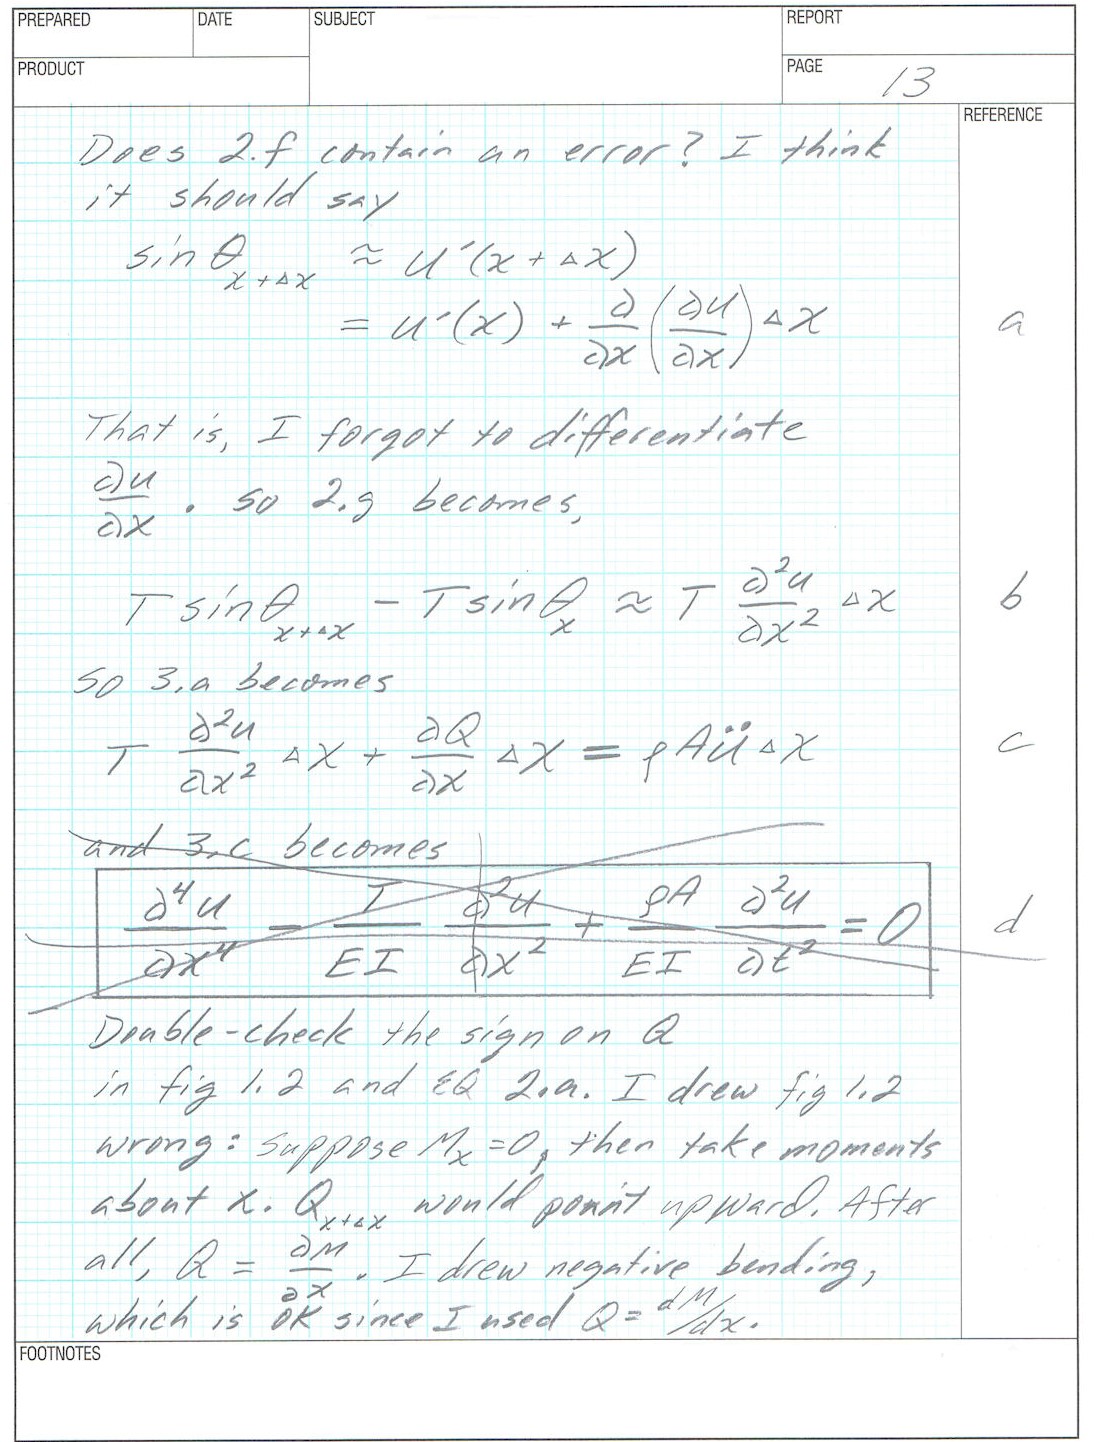 PREPARED DATE SUBJECT REPORT
PRODUCT PAGE 13
REFERENCE
Does 2.f contain an error? I think
it should say
sin θ_{x+Δx} ≈ u′(x+Δx)
= u′(x) + ∂/∂x (∂u/∂x) Δx a
That is, I forgot to differentiate
∂u/∂x . So 2.g becomes,
T sin θ_{x+Δx} − T sin θ_x ≈ T ∂²u/∂x² Δx b
So 3.a becomes
T ∂²u/∂x² Δx + ∂Q/∂x Δx = ρAü Δx c
and 3.c becomes
∂⁴u/∂x⁴ − T/EI ∂²u/∂x² + ρA/EI ∂²u/∂t² = 0 d
Double-check the sign on Q
in fig 1.2 and EQ 2.a. I drew fig 1.2
wrong: suppose M_x = 0, then take moments
about x. Q_{x+Δx} would point upward. After
all, Q = ∂M/∂x . I drew negative bending,
which is OK since I used Q = dM/dx.
FOOTNOTES